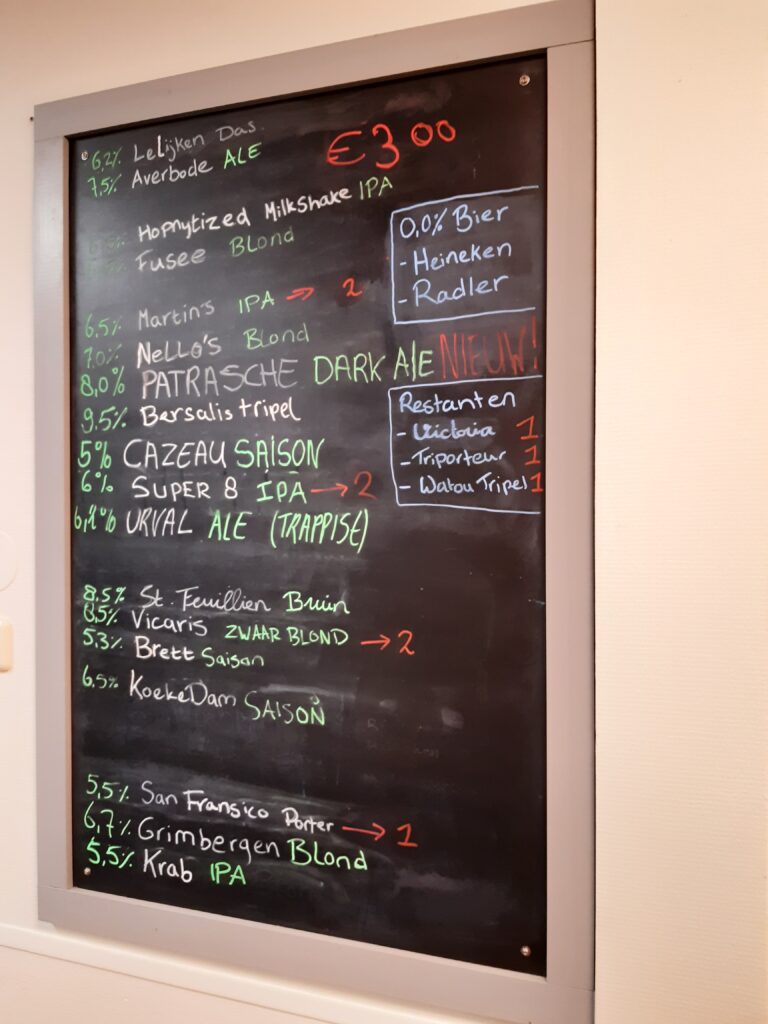 €3 00
6,2% Lelijken Das
7,5% Averbode ALE
Hopnytized Milkshake IPA
Fusee Blond
6,5% Martin's IPA → 2
7.0% Nello's Blond
8,0% PATRASCHE DARK Ale NIEUW!
9.5% Bersalis tripel
5% CAZEAU SAISON
6% SUPER 8 IPA → 2
URVAL ALE (TRAPPISE)
8.5% St. Feuillien Bruin
8,5% Vicaris ZWAAR BLOND → 2
5.3% Brett Saison
6,5% KoekeDam SAISON
5,5% San Fransico Porter → 1
6,7% Grimbergen Blond
5,5% Krab IPA
0,0% Bier
- Heineken
- Radler
Restanten
- Victoria 1
- Triporteur 1
- Watou Tripel 1